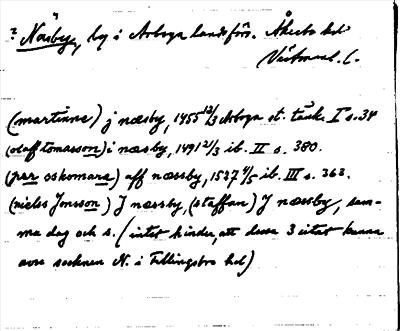 ? Näsby, by i Arboga landsförs. Åkerbo hd
Västmanl. l.
(martinus) j næsby, 1455 12/3 Arboga st. tänk. I s. 34
(olaff tomasson) i næsby, 1491 2/3 ib. II s. 380.
(par oskomara) aff næssby, 1527 4/5 ib. III s. 363.
(nicles Jonsson) J næssby, (staffan) J næssby, sam-
ma dag och s. (intet hinder, att dessa 3 citat kunna
avse socknen N. i Fellingsbro hd)